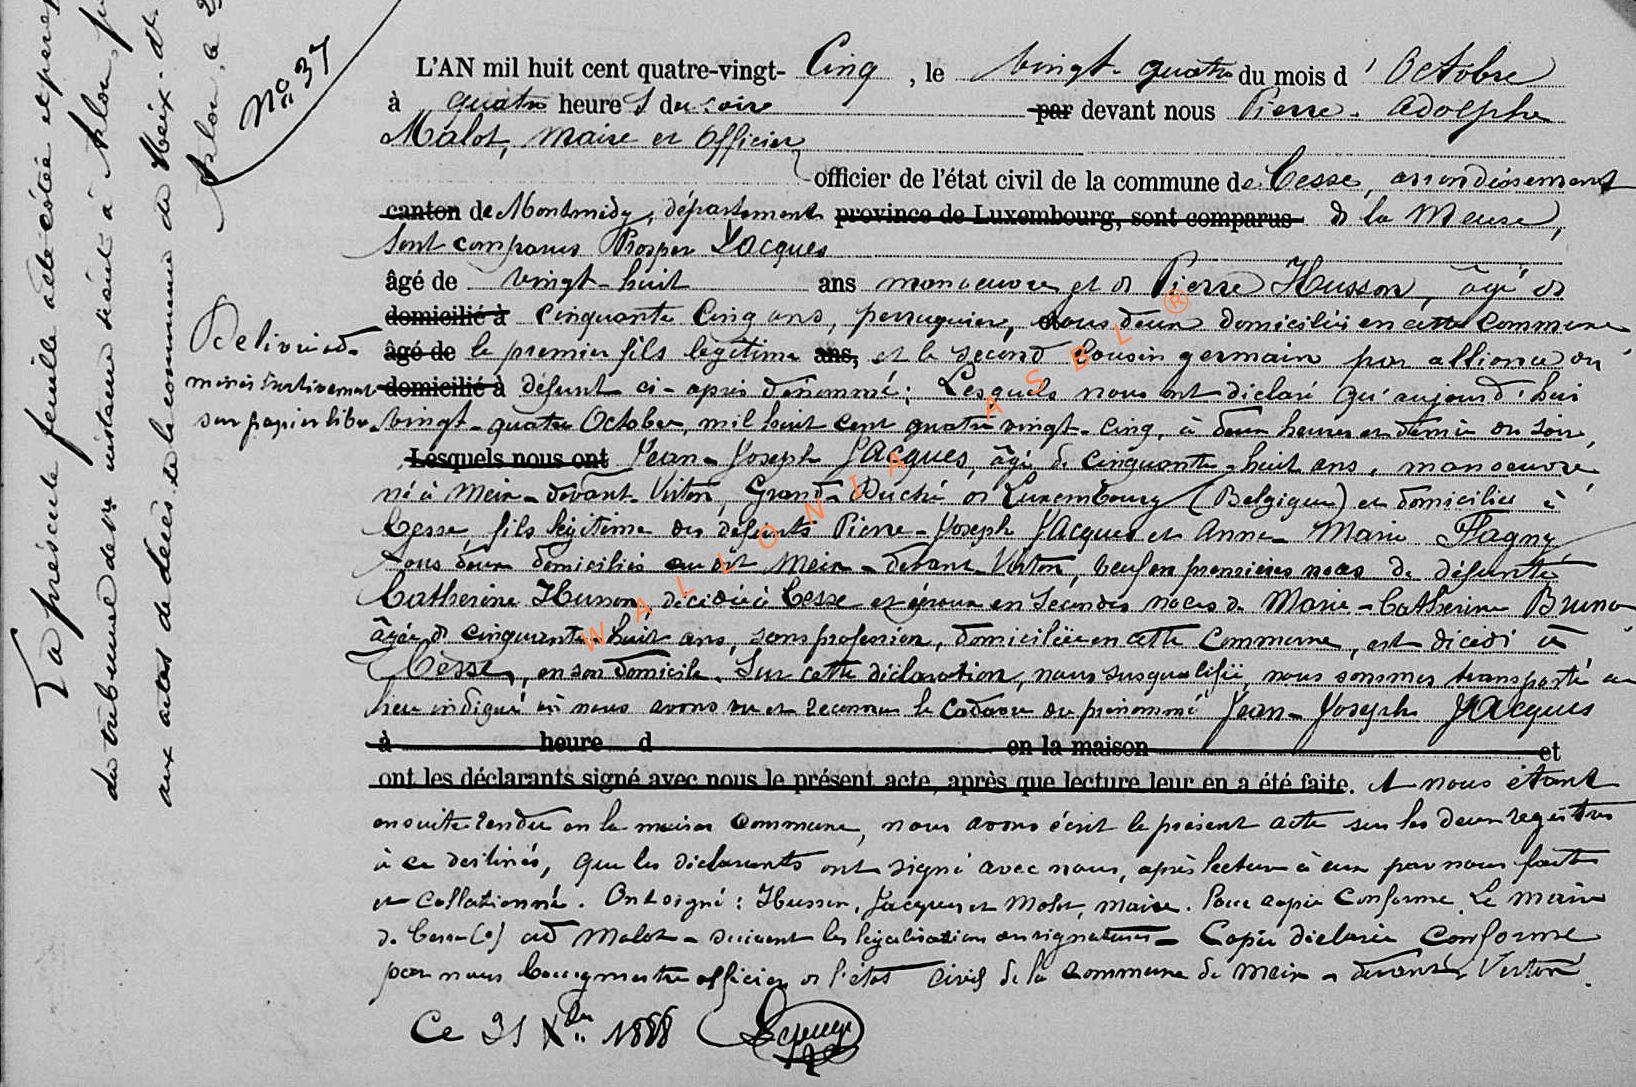 La présente feuille acte côtée et
du tribunal de 1re instance séant à Arlon,
aux actes de décès de la commune de Meix-d
Arlon, le 2
No 37
L'AN mil huit cent quatre-vingt- Cinq, le vingt-quatre du mois d' Octobre
à quatre heures du soire par devant nous Pierre-Adolphe
Malot, maire et officier
officier de l'état civil de la commune de Cesse, arrondissement
canton de Montmédy, département province de Luxembourg, sont comparus de la Meuse,
Sont comparus Prosper Jacques
âgé de vingt-huit ans manoeuvre et de Pierre Husson, âgé de
domicilié à cinquante cinq ans, perruquier, tous deux domiciliés en cette commune
Délivré
âgé de le premier fils légitime ans, et le second cousin germain par alliance du
administrativement
domicilié à défunt ci-après dénommé; Lesquels nous ont déclaré qu'aujourd'hui
sur papier libre
vingt-quatre Octobre, mil huit cent quatre vingt-cinq, à deux heures et demie du soir,
Lesquels nous ont Jean-Joseph Jacques, âgé de cinquante-huit ans, manoeuvre
né à Meix-devant-Virton, Grand-Duché de Luxembourg (Belgique) et domicilié à
Cesse, fils légitime des défunts Pierre-Joseph Jacques et Anne-Marie Flagny
tous deux domiciliés au dit Meix-devant-Virton, veuf en premières noces de défunte
Catherine Husson, décédée à Cesse et époux en secondes noces de Marie-Catherine Bruno
âgée de cinquante-huit ans, sans profession, domiciliée en cette commune, est décédé à
Cesse, en son domicile. Sur cette déclaration, nous susqualifié, nous sommes transporté au
lieu indiqué où nous avons vu et reconnu le cadavre du prénommé Jean-Joseph Jacques
à heure d en la maison et
ont les déclarants signé avec nous le présent acte, après que lecture leur en a été faite. Et nous étant
ensuite rendu en la maison commune, nous avons écrit le présent acte sur les deux registres
à ce destinés, que les déclarants ont signé avec nous, après lecture à eux par nous faite
et collationné. Ont signé: Husson, Jacques et Malot, maire. Pour copie conforme Le maire
de Cesse (s) ad Malot - suivent les légalisations de signatures - Copie déclarée conforme
par nous bourgmestre officier de l'état civil de la commune de Meix-devant-Virton.
Ce 31 Xbre 1888
WALLONIA ASBL ®